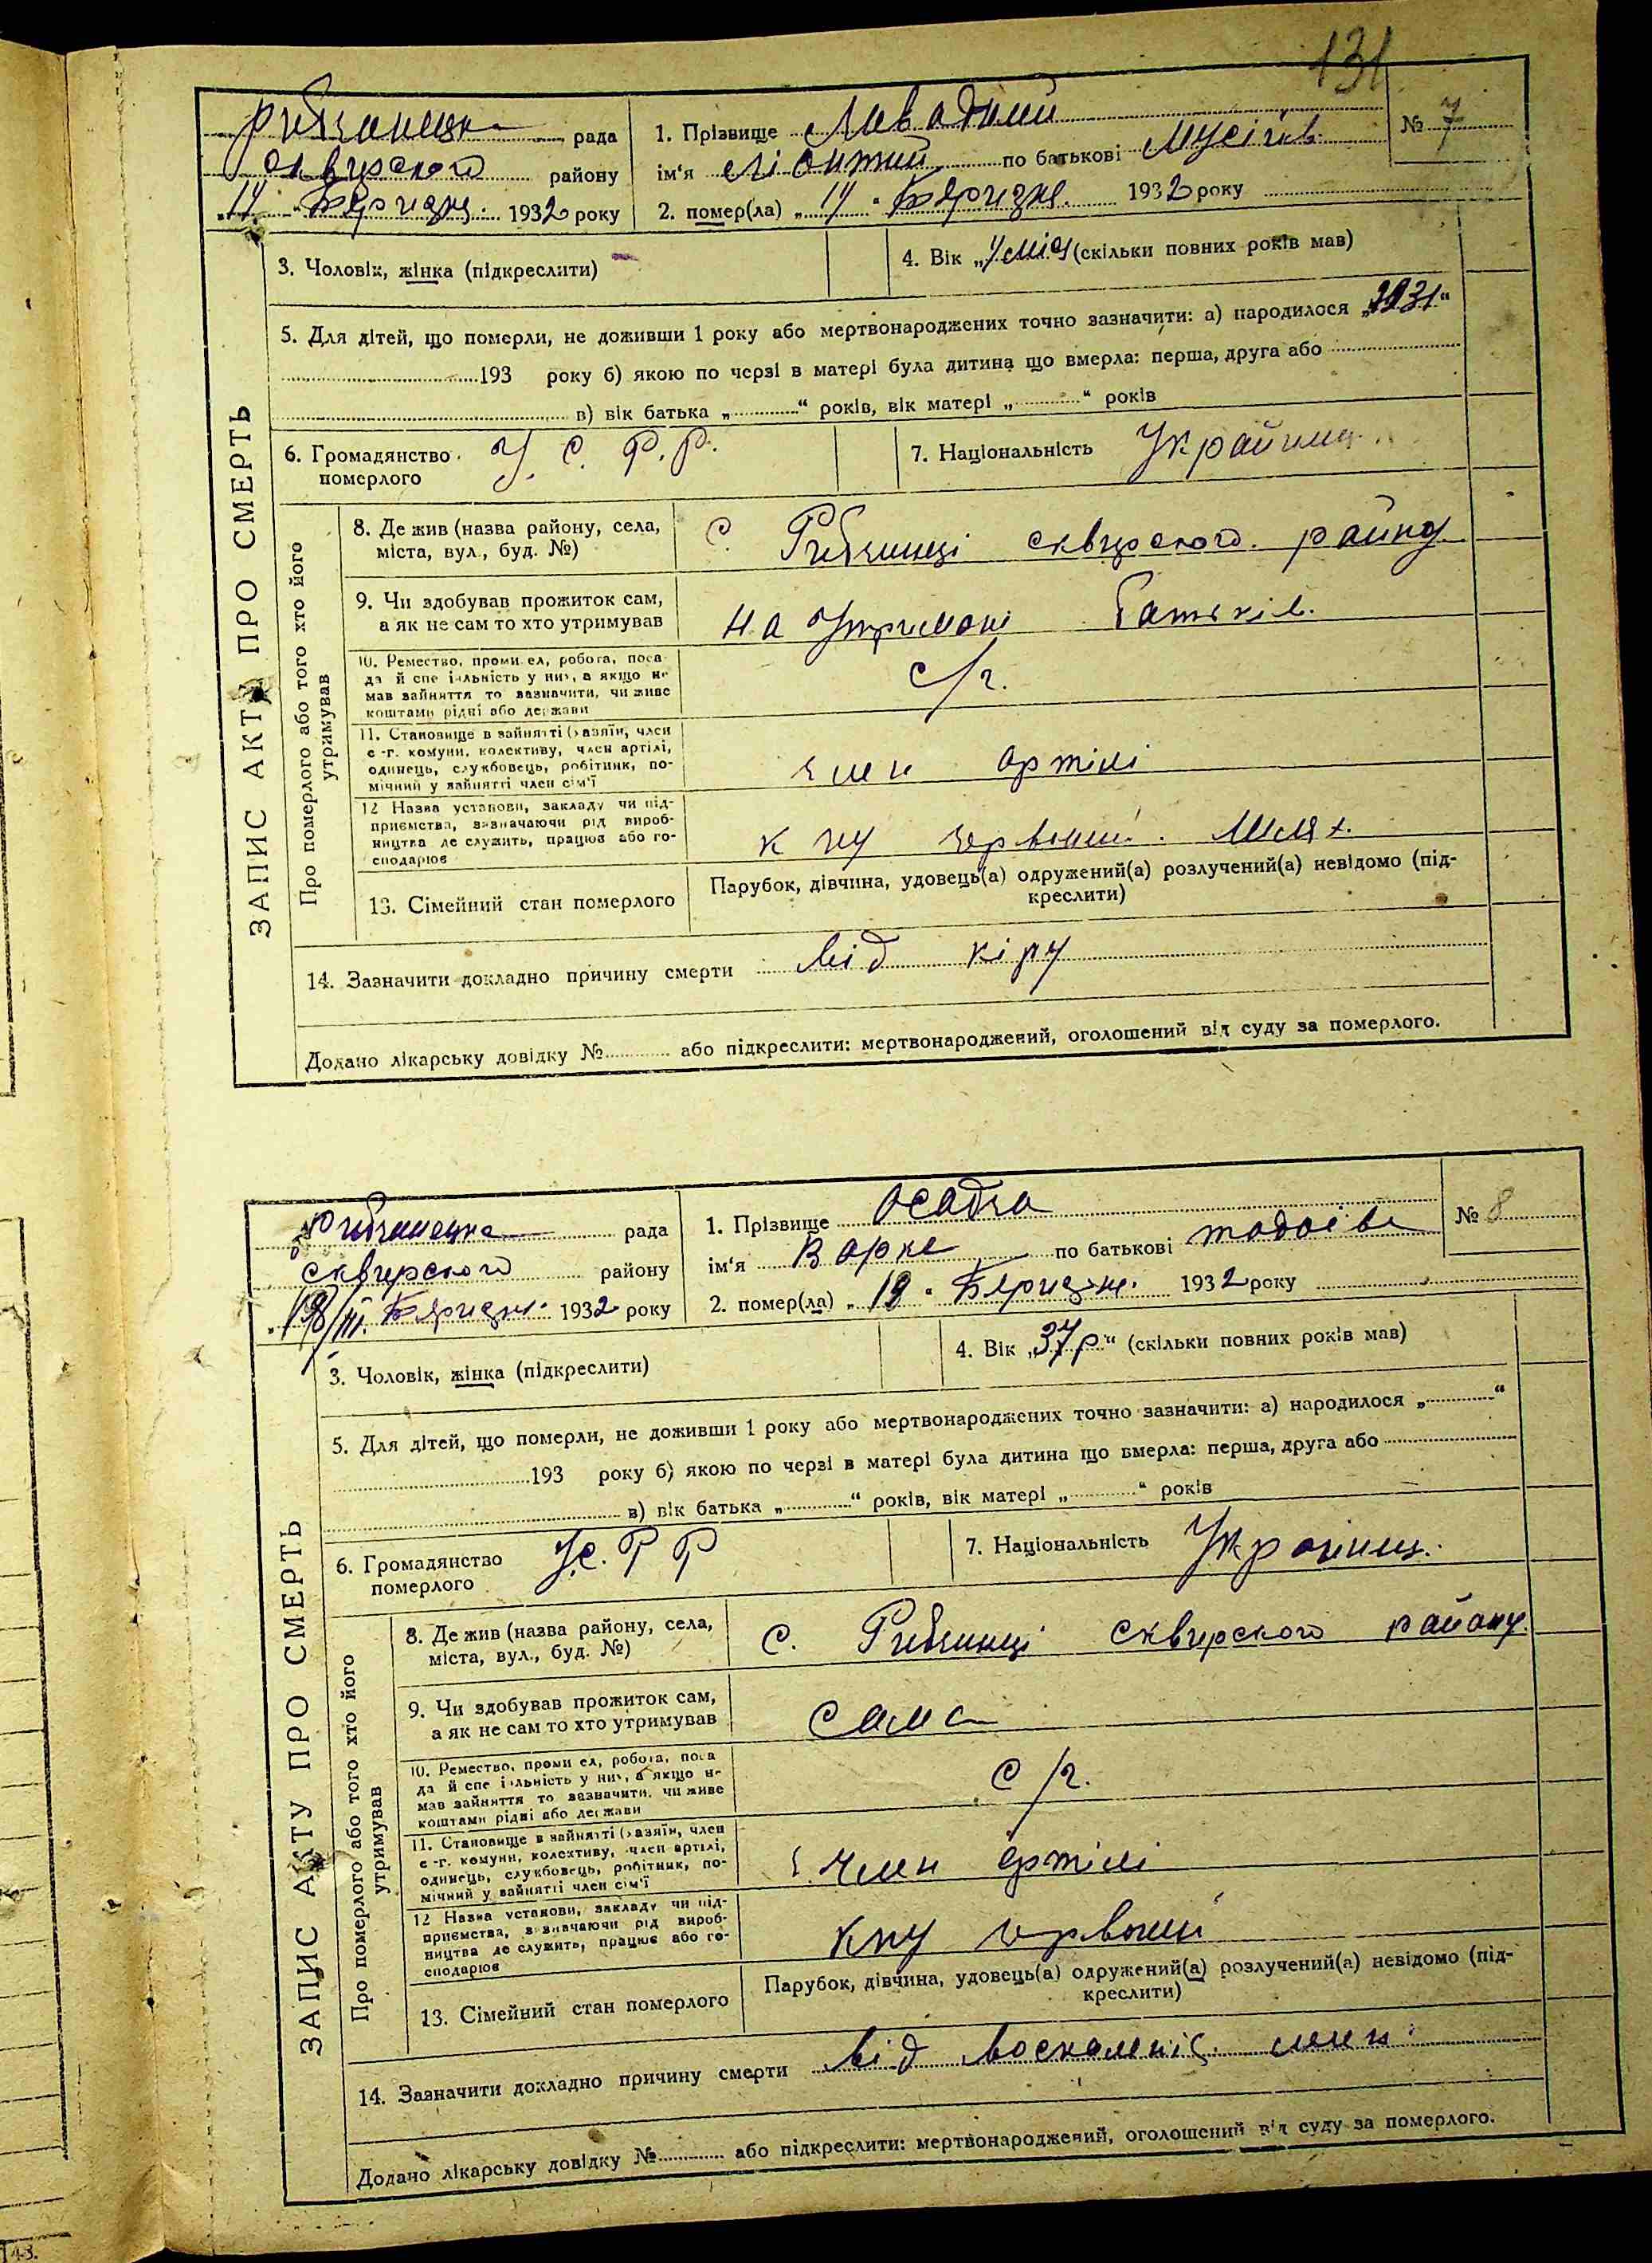 131
рада
1. Прізвище
№ 7
району
ім'я по батькові
1932 року
2. помер(ла) 1932 року
3. Чоловік, жінка (підкреслити)
4. Вік „ (скільки повних років мав)
5. Для дітей, що померли, не доживши 1 року або мертвонароджених точно зазначити: а) народилося „1931“
193 року б) якою по черзі в матері була дитина що вмерла: перша, друга або
в) вік батька „ “ років, вік матері „ “ років
6. Громадянство
померлого
У. С. Р. Р.
7. Національність
ЗАПИС АКТУ ПРО СМЕРТЬ
Про померлого або того хто його
утримував
8. Де жив (назва району, села,
міста, вул., буд. №)
с. Рибчинці сквирского району
9. Чи здобував прожиток сам,
а як не сам то хто утримував
на утримані батьків.
10. Ремество, промисел, робота, поса-
да й спеціальність у них, а якщо не
мав зайняття то зазначити, чи живе
коштами рідні або держави
с/г.
11. Становище в зайнятті (хазяїн, член
с-г. комуни, колективу, член артілі,
одинець, службовець, робітник, по-
мічний у зайнятті член сім'ї
член артілі
12 Назва установи, закладу чи під-
приємства, зазначаючи рід вироб-
ництва де служить, працює або го-
сподарює
шлях.
13. Сімейний стан померлого
Парубок, дівчина, удовець(а) одружений(а) розлучений(а) невідомо (під-
креслити)
14. Зазначити докладно причину смерти від кіру
Додано лікарську довідку № або підкреслити: мертвонароджений, оголошений від суду за померлого.
рада
1. Прізвище Осадча
№ 8
сквирского району
ім'я Варка по батькові
1932 року
2. помер(ла) 1932 року
3. Чоловік, жінка (підкреслити)
4. Вік „37р“ (скільки повних років мав)
5. Для дітей, що померли, не доживши 1 року або мертвонароджених точно зазначити: а) народилося „ “
193 року б) якою по черзі в матері була дитина що вмерла: перша, друга або
в) вік батька „ “ років, вік матері „ “ років
6. Громадянство
померлого
У.С.Р Р
7. Національність
ЗАПИС АКТУ ПРО СМЕРТЬ
Про померлого або того хто його
утримував
8. Де жив (назва району, села,
міста, вул., буд. №)
с. Рибчинці сквирского району.
9. Чи здобував прожиток сам,
а як не сам то хто утримував
сама
10. Ремество, промисел, робота, поса-
да й спеціальність у них, а якщо не
мав зайняття то зазначити, чи живе
коштами рідні або держави
с/г.
11. Становище в зайнятті (хазяїн, член
с-г. комуни, колективу, член артілі,
одинець, службовець, робітник, по-
мічний у зайнятті член сім'ї
член артілі
12 Назва установи, закладу чи під-
приємства, зазначаючи рід вироб-
ництва де служить, працює або го-
сподарює
13. Сімейний стан померлого
Парубок, дівчина, удовець(а) одружений(а) розлучений(а) невідомо (під-
креслити)
14. Зазначити докладно причину смерти від
Додано лікарську довідку № або підкреслити: мертвонароджений, оголошений від суду за померлого.